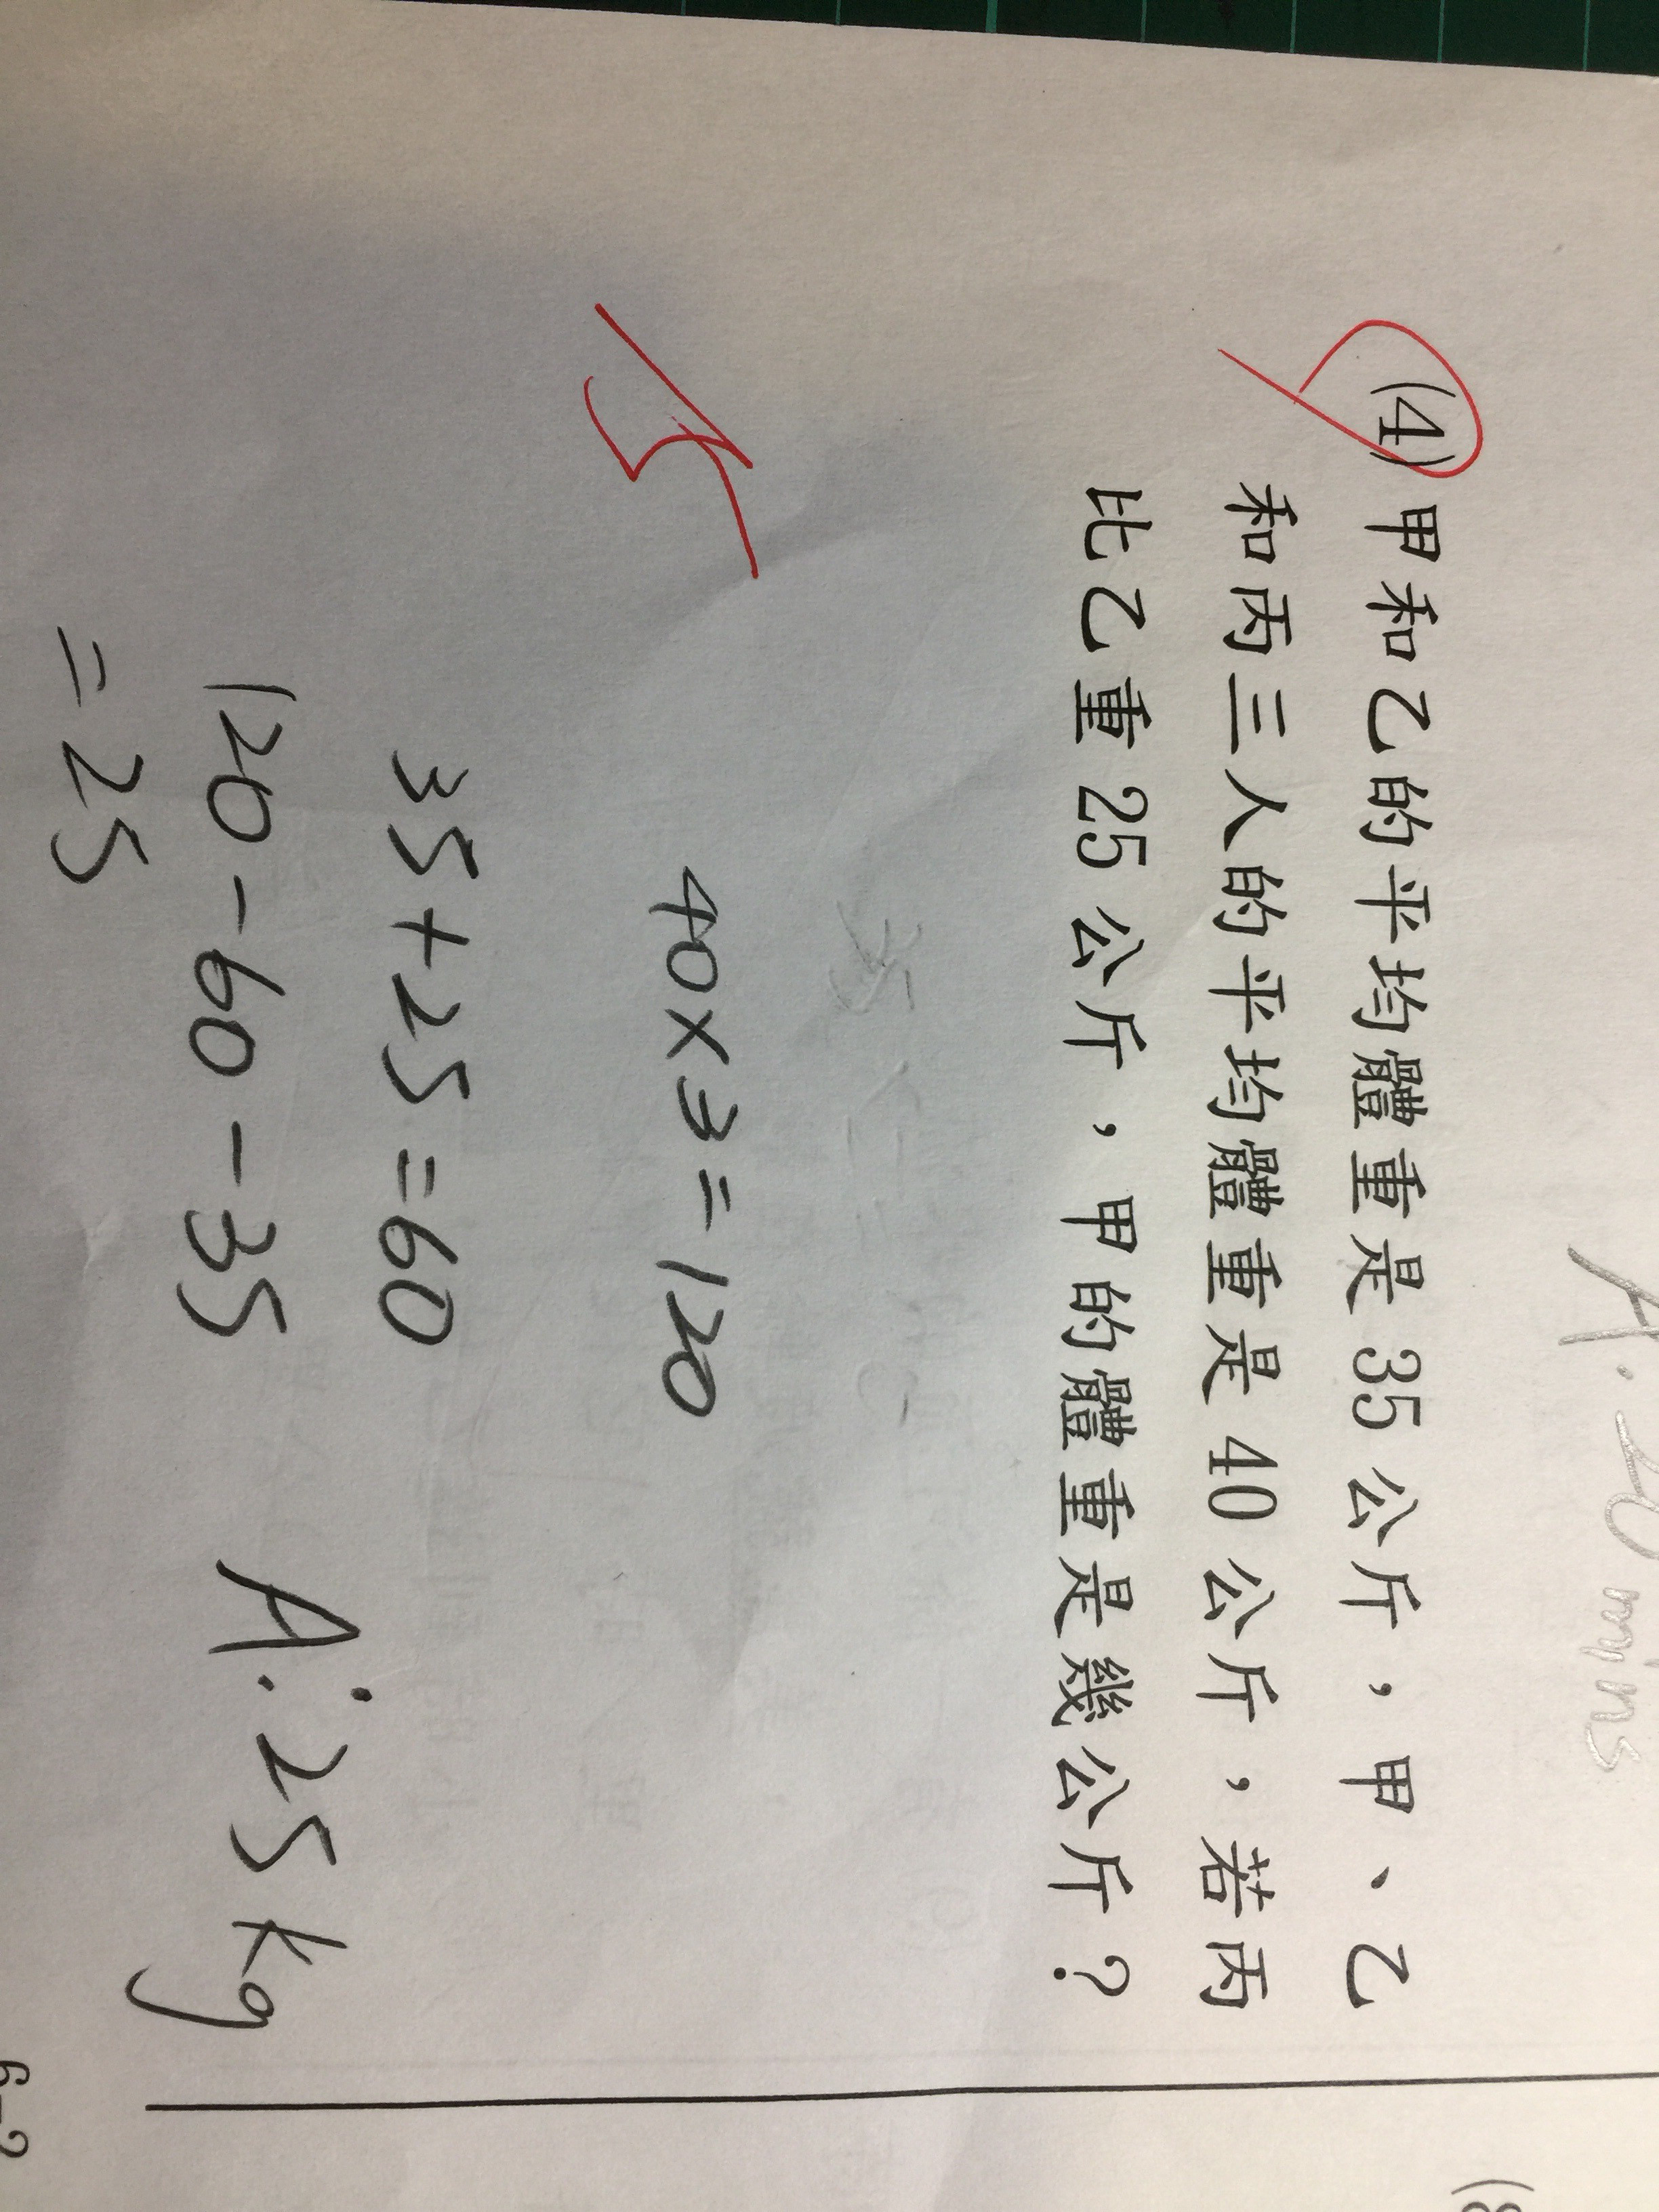 A:20 mins
(4) 甲和乙的平均體重是 35 公斤，甲、乙
和丙三人的平均體重是 40 公斤，若丙
比乙重 25 公斤，甲的體重是幾公斤？
40×3=120
35+25=60
120-60-35
=25
A:25kg
6-2
(8